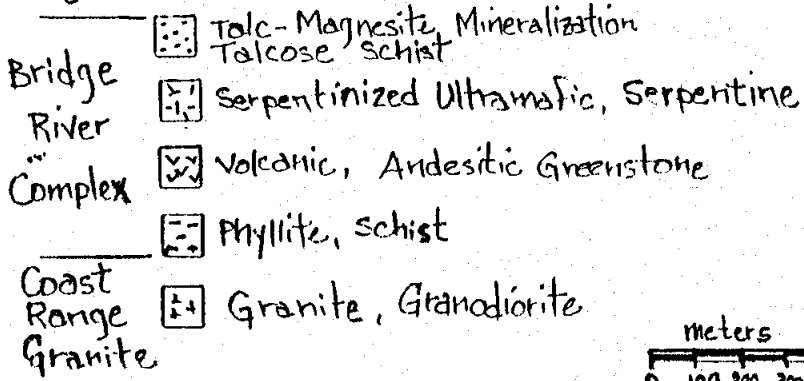 Talc-Magnesite Mineralization
Talcose Schist
Bridge River Complex
Serpentinized Ultramafic, Serpentine
Volcanic, Andesitic Greenstone
Phyllite, Schist
Coast Range Granite
Granite, Granodiorite
meters
0 100 200 300